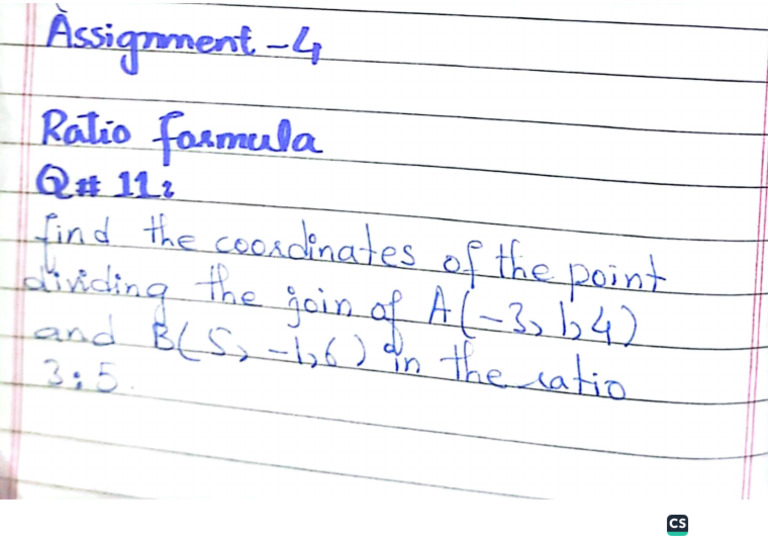 Assignment - 4
Ratio formula
Q# 11:
find the coordinates of the point
dividing the join of A(-3, 1, 4)
and B(5, -1, 6) in the ratio
3:5.
CS